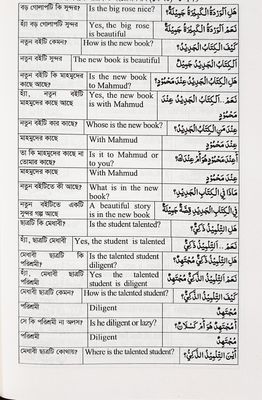 বড় গোলাপটি কি সুন্দর? Is the big rose nice? هَلِ الْوَرْدَةُ الْكَبِيْرَةُ جَمِيْلَةٌ؟
হ্যাঁ বড় গোলাপটি সুন্দর Yes, the big rose نَعَمْ اَلْوَرْدَةُ الْكَبِيْرَةُ جَمِيْلَةٌ
is beautiful
নতুন বইটি কেমন? How is the new book? كَيْفَ الْكِتَابُ الْجَدِيْدُ؟
নতুন বইটি সুন্দর The new book is beautiful اَلْكِتَابُ الْجَدِيْدُ جَمِيْلٌ
নতুন বইটি কি মাহমুদের Is the new book هَلِ الْكِتَابُ الْجَدِيْدُ عِنْدَ مَحْمُوْدٍ؟
কাছে? to Mahmud?
হ্যাঁ, নতুন বইটি Yes, the new book نَعَمْ ـ اَلْكِتَابُ الْجَدِيْدُ عِنْدَ
মাহমুদের কাছে is with Mahmud مَحْمُوْدٍ
নতুন বইটি কার কাছে? Whose is the new book? عِنْدَ مَنِ الْكِتَابُ الْجَدِيْدُ؟
মাহমুদের কাছে With Mahmud عِنْدَ مَحْمُوْدٍ
তা কি মাহমুদের কাছে না Is it to Mahmud or أَعِنْدَ مَحْمُوْدٍ هُوَ أَمْ عِنْدَكَ؟
তোমার কাছে? to you?
মাহমুদের কাছে With Mahmud عِنْدَ مَحْمُوْدٍ
নতুন বইটিতে কী আছে? What is in the new مَاذَا فِي الْكِتَابِ الْجَدِيْدِ؟
book?
নতুন বইটিতে একটি A beautiful story فِي الْكِتَابِ الْجَدِيْدِ قِصَّةٌ جَمِيْلَةٌ
সুন্দর গল্প আছে is in the new book
ছাত্রটি কি মেধাবী? Is the student talented? هَلِ التِّلْمِيْذُ ذَكِيٌّ؟
হ্যাঁ, ছাত্রটি মেধাবী Yes, the student is talented نَعَمْ ـ اَلتِّلْمِيْذُ ذَكِيٌّ
মেধাবী ছাত্রটি কি Is the talented student هَلِ التِّلْمِيْذُ الذَّكِيُّ مُجْتَهِدٌ؟
পরিশ্রমী? diligent?
হ্যাঁ, মেধাবী ছাত্রটি Yes the talented نَعَمْ ـ اَلتِّلْمِيْذُ الذَّكِيُّ مُجْتَهِدٌ
পরিশ্রমী student is diligent
মেধাবী ছাত্রটি কেমন? How is the talented student? كَيْفَ التِّلْمِيْذُ الذَّكِيُّ؟
পরিশ্রমী Diligent مُجْتَهِدٌ
সে কি পরিশ্রমী না অলস? Is he diligent or lazy? أَمُجْتَهِدٌ هُوَ أَمْ كَسْلَانُ؟
পরিশ্রমী Diligent مُجْتَهِدٌ
মেধাবী ছাত্রটি কোথায়? Where is the talented student? أَيْنَ التِّلْمِيْذُ الذَّكِيُّ؟